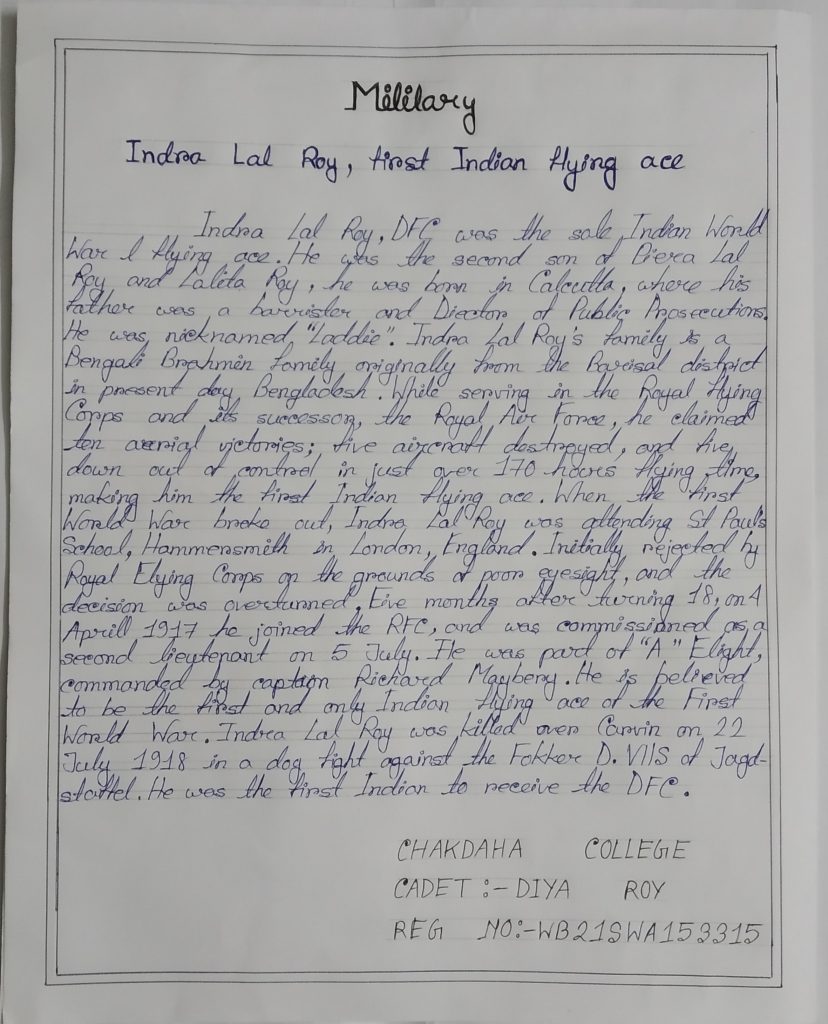 Military
Indra Lal Roy, first Indian flying ace
Indra Lal Roy, DFC was the sole Indian World
War I flying ace. He was the second son of Piera Lal
Roy and Lalita Roy, he was born in Calcutta, where his
father was a barrister and Director of Public Prosecutions.
He was nicknamed "Laddie". Indra Lal Roy's family is a
Bengali Brahmin family originally from the Barisal district
in present day Bengladesh. While serving in the Royal Flying
Corps and its successor, the Royal Air Force, he claimed
ten aerial victories; five aircraft destroyed, and five
down out of control in just over 170 hours flying time,
making him the first Indian flying ace. When the first
World War broke out, Indra Lal Roy was attending St Paul's
School, Hammersmith in London, England. Initially rejected by
Royal Flying Corps on the grounds of poor eyesight, and the
decision was overturned. Five months after turning 18, on 4
Aprill 1917 he joined the RFC, and was commissioned as a
second lieutenant on 5 July. He was part of "A" Flight,
commanded by captain Richard Maybery. He is believed
to be the first and only Indian flying ace of the First
World War. Indra Lal Roy was killed over Carvin on 22
July 1918 in a dog fight against the Fokker D. VIIS of Jagd-
staffel. He was the first Indian to receive the DFC.
CHAKDAHA COLLEGE
CADET :- DIYA ROY
REG NO:-WB21SWA153315